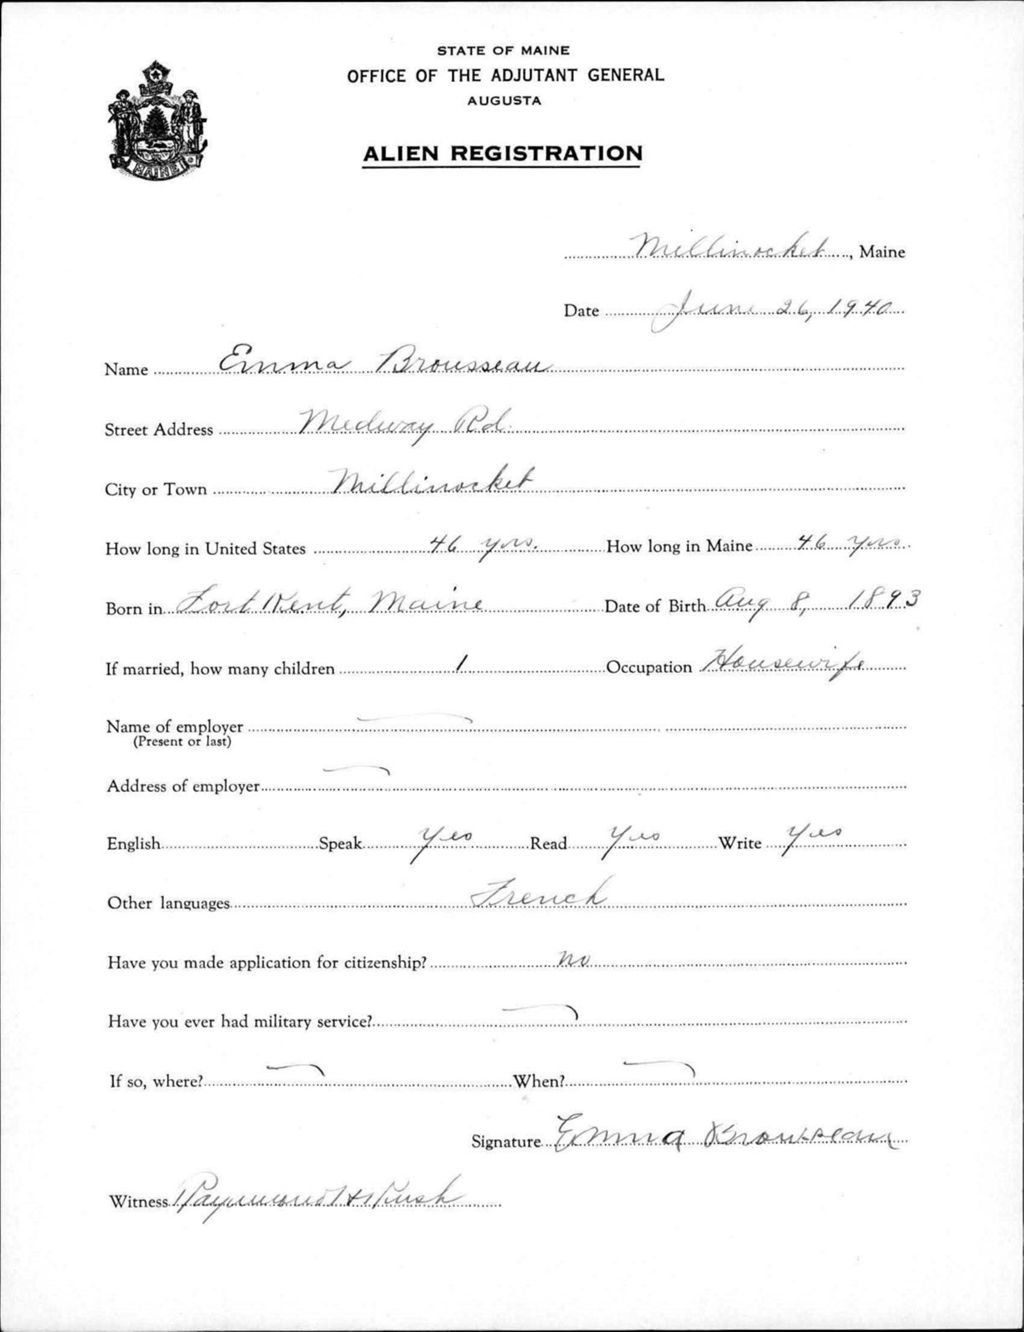 STATE OF MAINE
OFFICE OF THE ADJUTANT GENERAL
AUGUSTA
ALIEN REGISTRATION
MAINE
Millinocket, Maine
Date June 26, 1940
Name Emma Brousseau
Street Address Medway Rd.
City or Town Millinocket
How long in United States 46 yrs. How long in Maine 46 yrs.
Born in Fort Kent, Maine Date of Birth Aug 8, 1893
If married, how many children 1 Occupation Housewife
Name of employer
(Present or last)
Address of employer
English Speak Yes Read Yes Write Yes
Other languages French
Have you made application for citizenship? No
Have you ever had military service?
If so, where? When?
Signature Emma Brousseau
Witness Raymond H Rush